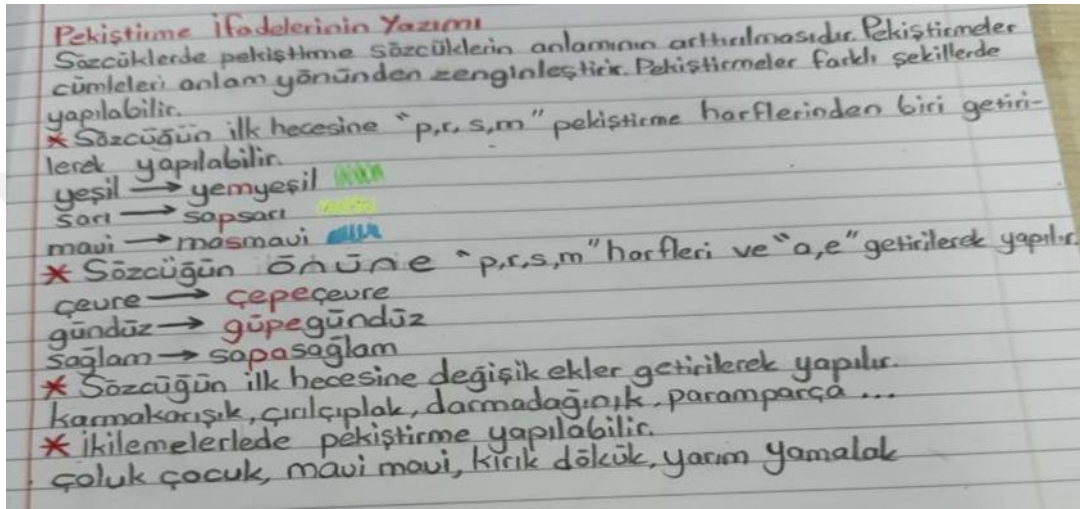 Pekiştirme İfadelerinin Yazımı
Sözcüklerde pekiştirme sözcüklerin anlamının arttırılmasıdır. Pekiştirmeler
cümleleri anlam yönünden zenginleştirir. Pekiştirmeler farklı şekillerde
yapılabilir.
* Sözcüğün ilk hecesine "p,r,s,m" pekiştirme harflerinden biri getiri-
lerek yapılabilir.
yeşil → yemyeşil
sarı → sapsarı
mavi → masmavi
* Sözcüğün önüne "p,r,s,m" harfleri ve "a,e" getirilerek yapılır.
çevre → çepeçevre
gündüz → güpegündüz
sağlam → sapasağlam
* Sözcüğün ilk hecesine değişik ekler getirilerek yapılır.
karmakarışık, çırılçıplak, darmadağınık, paramparça ...
* İkilemelerlede pekiştirme yapılabilir.
çoluk çocuk, mavi mavi, kırık dökük, yarım yamalak